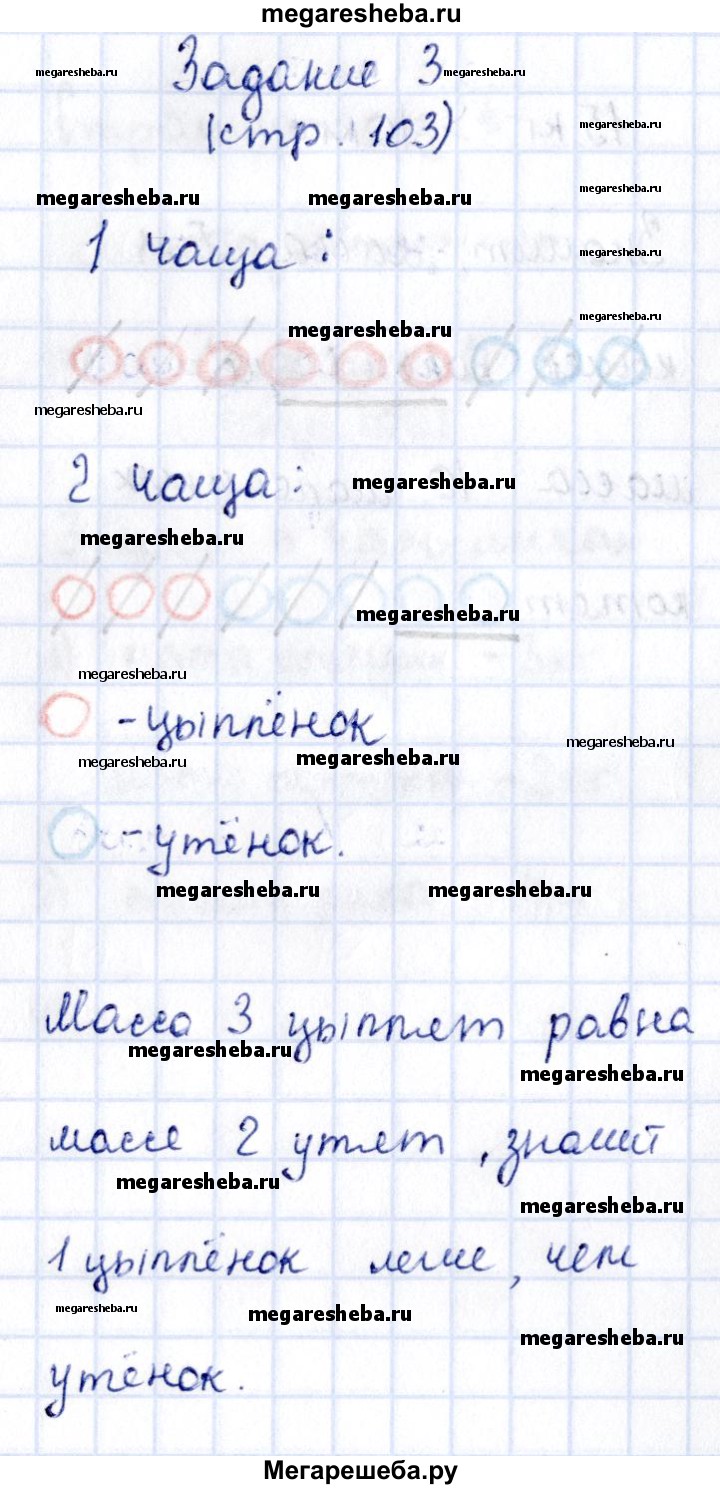 megaresheba.ru
megaresheba.ru Задание 3 megaresheba.ru
(стр. 103) megaresheba.ru
megaresheba.ru megaresheba.ru megaresheba.ru
1 чаща: megaresheba.ru
megaresheba.ru
megaresheba.ru
megaresheba.ru
2 чаща: megaresheba.ru
megaresheba.ru
megaresheba.ru
megaresheba.ru
- цыплёнок
megaresheba.ru
megaresheba.ru megaresheba.ru
- утёнок.
megaresheba.ru megaresheba.ru
Масса 3 цыплят равна
megaresheba.ru megaresheba.ru
массе 2 утят, значит
megaresheba.ru megaresheba.ru
1 цыплёнок легче, чем
megaresheba.ru megaresheba.ru
megaresheba.ru
утёнок.
Мегарешеба.ру